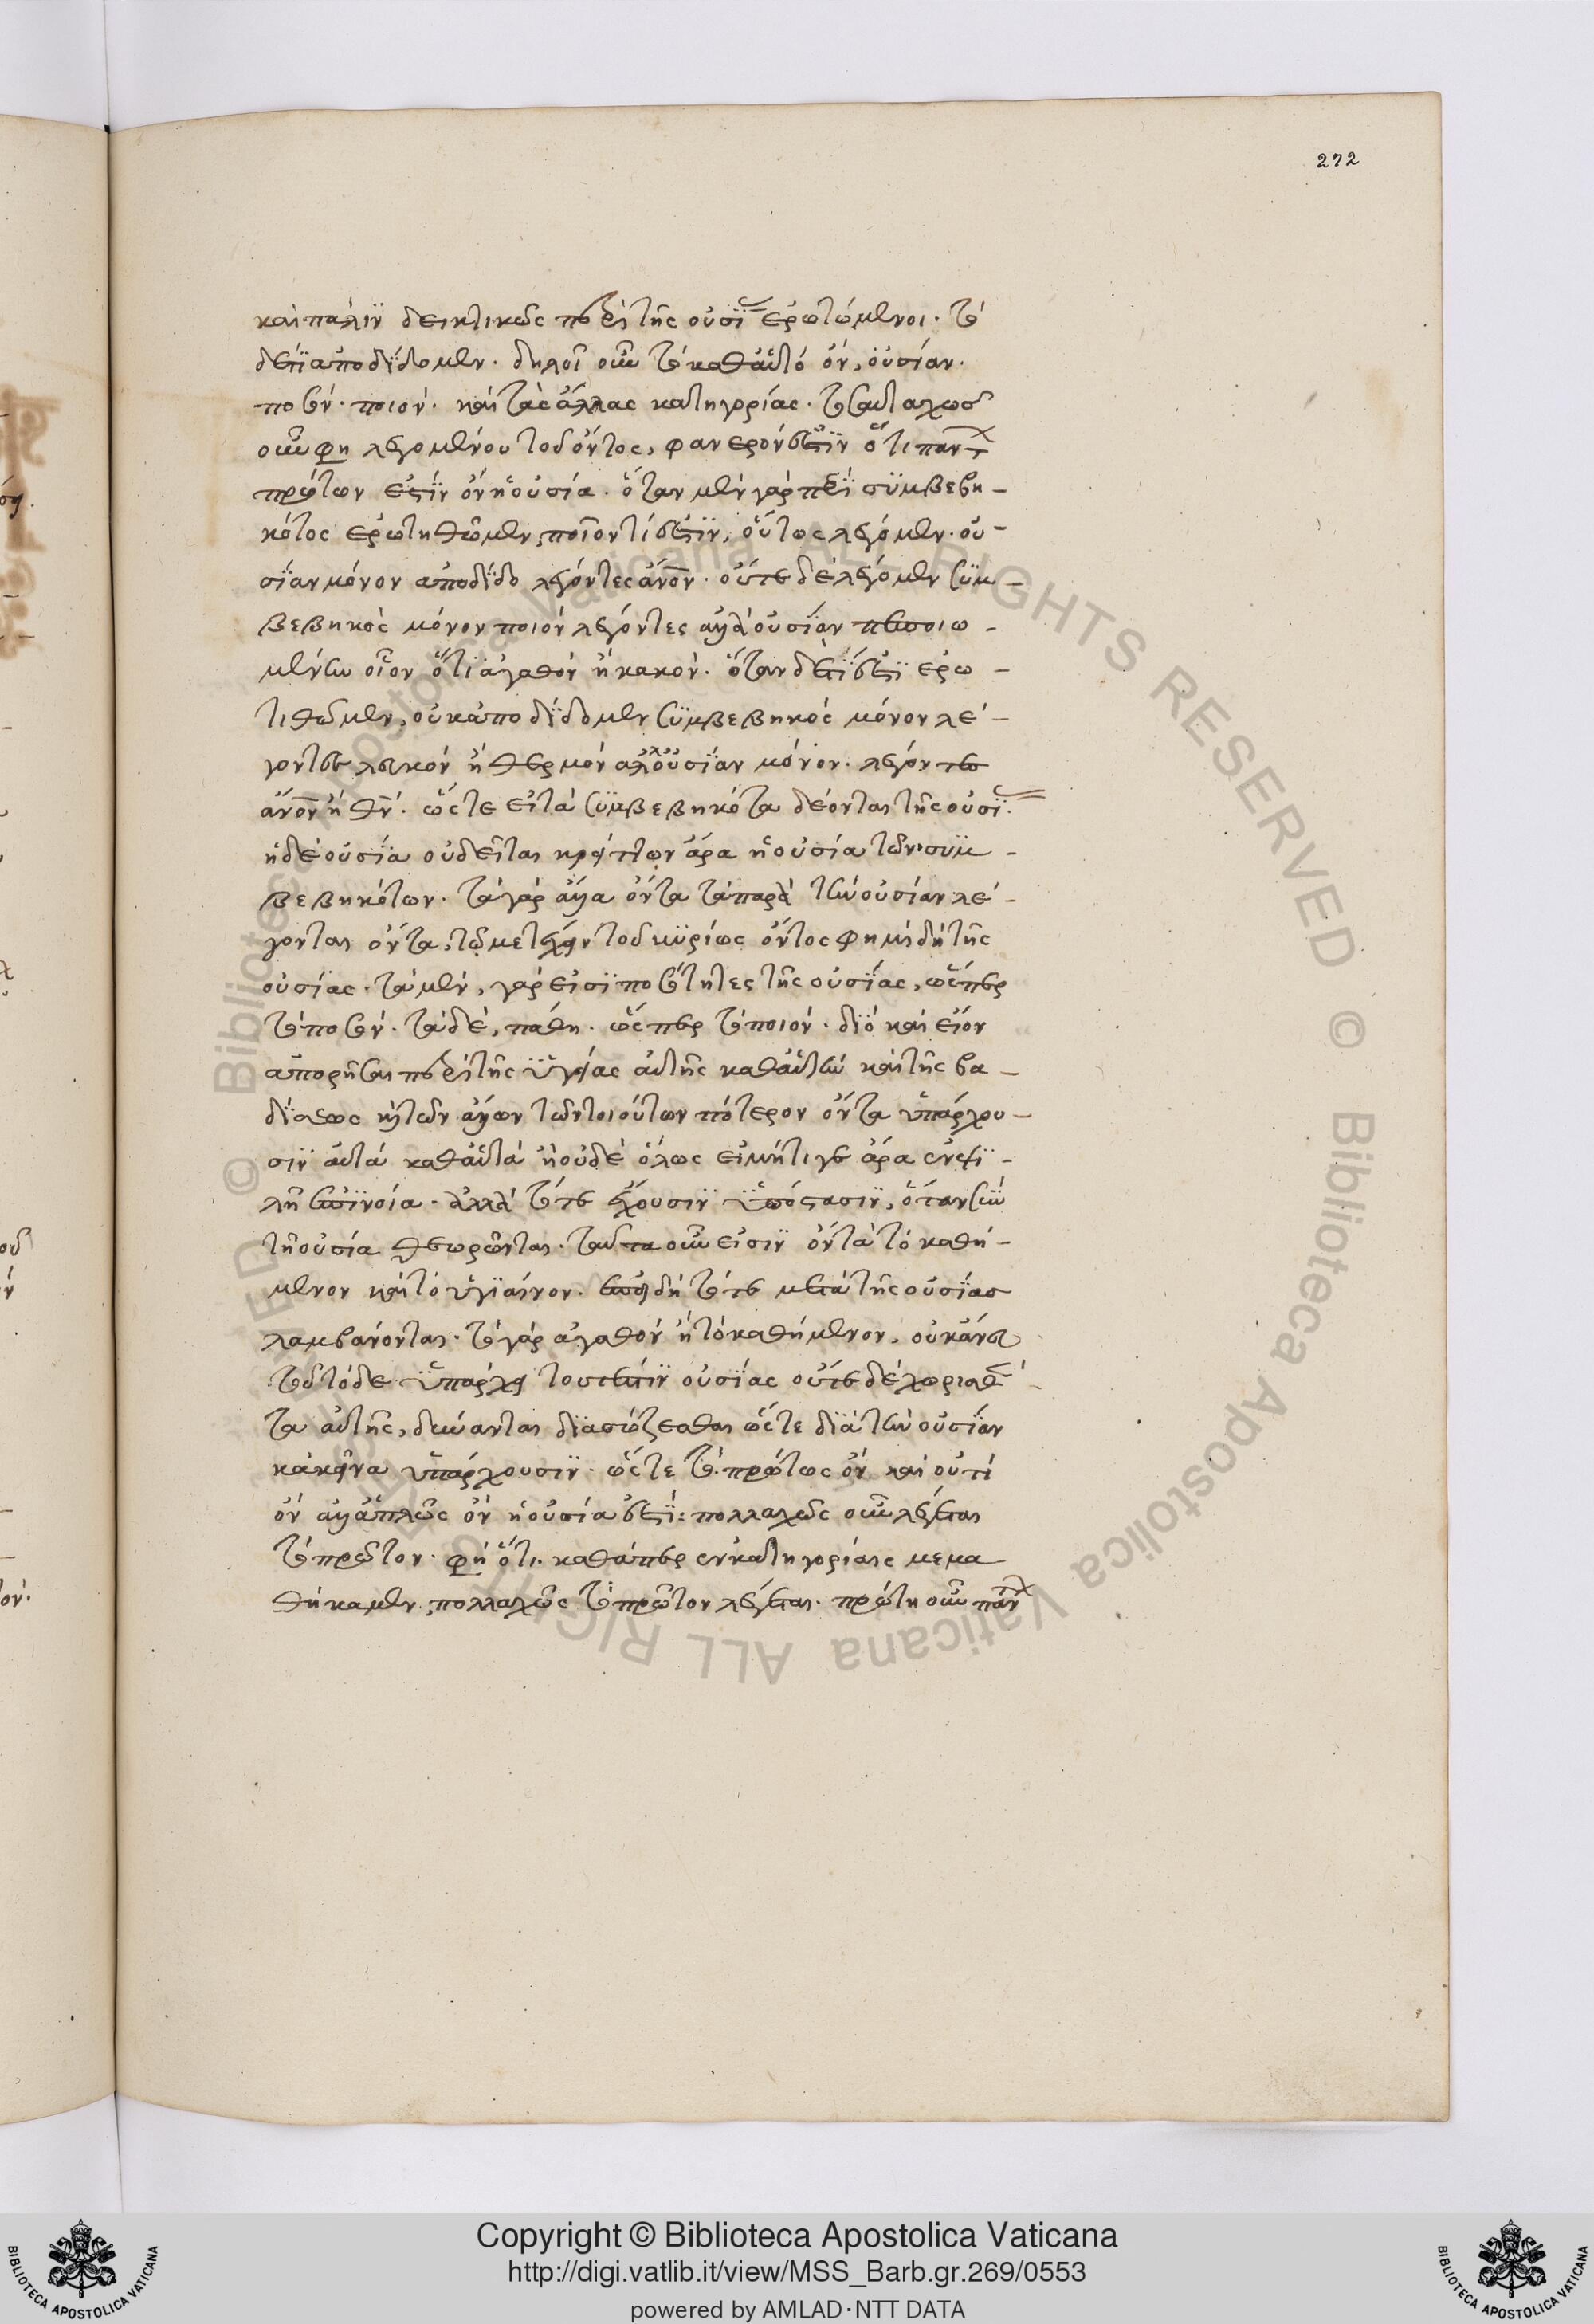 272
καὶ πάλιν δεικτικῶς περὶ τῆς οὐσίας ἐρωτώμενοι. τὸ
δε τί ἀποδίδομεν. δηλοῖ οὖν τὸ καθ αὑτό ὄν, οὐσίαν.
ποσόν. ποιόν. καὶ τὰς ἄλλας κατηγορίας. τοσαυταχῶς
οὖν φη λεγομένου τοῦ ὄντος, φανερόν ἐστιν ὅτι πάντ
πρώτων ἐστὶν ὄν ἡ οὐσία. ὅταν μέν γάρ περὶ συμβεβη-
κότος ἐρωτηθῶμεν, ποῖον τί ἐστιν, οὕτως λέγομεν. οὐ-
σίαν μόνον ἀποδίδο λέγοντες ἄνον. οὔτε δὲ λέγομεν συμ-
βεβηκός μόνον ποιόν λέγοντες ἀλλὰ οὐσίαν πεποιω-
μένην οἷον ὅτι ἀγαθόν ἢ κακόν. ὅταν δε τί ἐστι ἐρω-
τιθῶμεν, οὐκ ἀποδίδομεν συμβεβηκός μόνον λέ-
γοντες λευκόν ἢ θερμόν ἀλλ οὐσίαν μόνον. λέγοντες
ἄνον ἢ θν. ὥστε εἰ τὰ συμβεβηκότα δέονται τῆς οὐσί.
ἡ δὲ οὐσία οὐ δεῖται κρείττων ἄρα ἡ οὐσία τῶν συμ-
βεβηκότων. τὰ γάρ ἄλλα ὄντα τὰ παρὰ τὴν οὐσίαν λέ-
γονται ὄντα, τῷ μετέχειν τοῦ κυρίως ὄντος φημὶ δὴ τῆς
οὐσίας. τὰ μέν, γάρ εἰσι ποσότητες τῆς οὐσίας, ὥσπερ
τὸ ποσόν. τὰ δέ, πάθη. ὥσπερ τὸ ποιόν. διό καὶ εἶον
ἀπορῆσαι περὶ τῆς ὑγείας αὐτῆς καθ αὑτὴν καὶ τῆς βα-
δίσεως καὶ τῶν ἄλλων τῶν τοιούτων πότερον ὄντα ὑπάρχου-
σιν αὐτά καθ αὑτά ἢ οὐδὲ ὅλως εἰ μή τι γε ἄρα ἐν ψι-
λῇ ἐπινοία. ἀλλὰ τότε ἔχουσιν ὑπόστασιν, ὅταν σὺν
τῇ οὐσία θεωρῶνται. ταῦτα οὖν εἰσιν ὄντα τὸ καθή-
μενον καὶ τὸ ὑγιαίνον. ἐπειδὴ τότε μετὰ τῆς οὐσίας
λαμβάνονται. τὸ γάρ ἀγαθόν ἢ τὸ καθήμενον, οὐκ ἄνευ
τοῦ τόδε ὑπάρχει τουτέστιν οὐσίας οὔτε δὲ χωρισθέ-
τα αὐτῆς, δύνανται διασώζεσθαι ὥστε διὰ τὴν οὐσίαν
κἀκεῖνα ὑπάρχουσιν. ὥστε τὸ πρώτως ὄν καὶ οὐ τὶ
ὄν ἀλλ ἁπλῶς ὄν ἡ οὐσία ἐστί: πολλαχῶς οὖν λέγεται
τὸ πρῶτον. φη ὅτι καθάπερ ἐν κατηγορίαις μεμα
θήκαμεν, πολλαχῶς τὸ πρῶτον λέγεται. πρώτη οὖν πάν
Copyright © Biblioteca Apostolica Vaticana
http://digi.vatlib.it/view/MSS_Barb.gr.269/0553
powered by AMLAD·NTT DATA